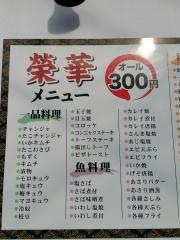 榮華
メニュー
オール
300円
一品料理
・チャンジャ
・たこチャンジャ
・いかキムチ
・たこわさび
・もずく
・キムチ
・漬物
・モロキュウ
・塩キュウ
・梅キュウ
・マヨキュウ
・冷奴
・枝豆
・玉子焼
・目玉焼
・コロッケ
・コンニャクステーキ
・トーフステーキ
・揚出しトーフ
・ピザトースト
魚料理
・塩さば
・さば煮付
・さば味噌煮
・いわし塩焼
・いわし煮付
・カレイ焼
・カレイ煮付
・さんま塩焼
・あじ塩焼
・エビ天ぷら
・エビフライ
・いか焼
・げそ焼
・あさりバター
・あさり酒蒸
・各種さしみ
・各種天ぷら
・各種フライ